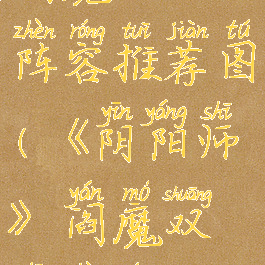 zhèn róng tuī jiàn tú
阵容推荐图
yīn yáng shī
(《阴阳师
yán mó shuāng
》阎魔双